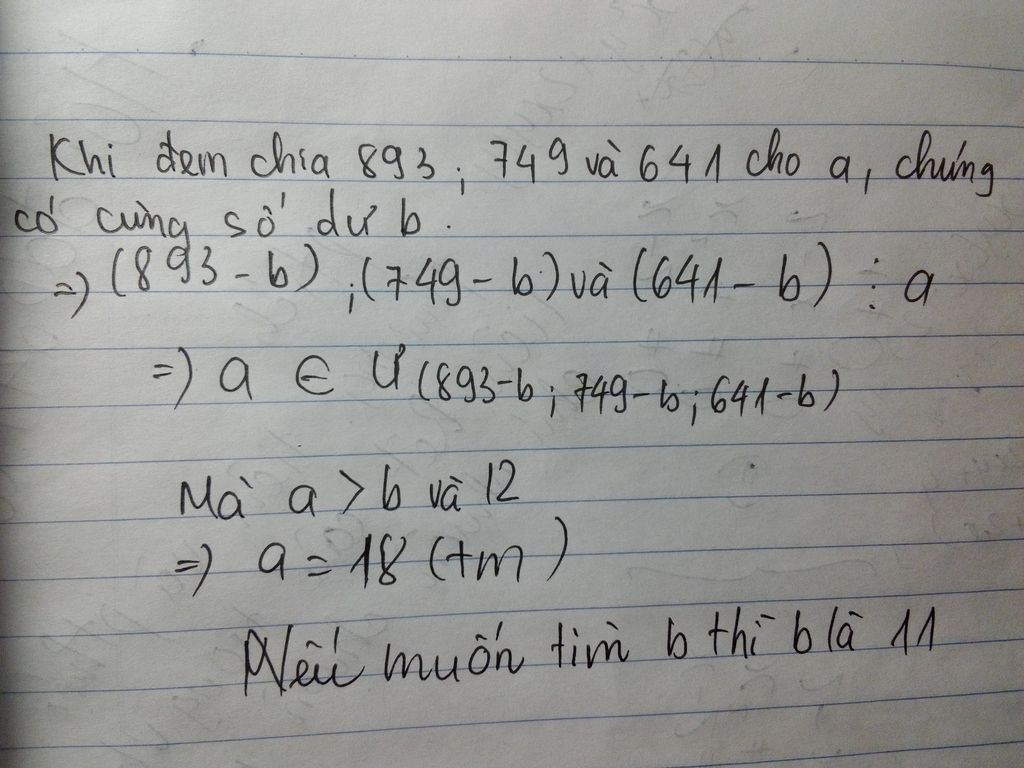 Khi đem chia 893 ; 749 và 641 cho a, chúng
có cùng số dư b.
=> (893 - b) ; (749 - b) và (641 - b) ⋮ a
=> a ∈ Ư (893-b ; 749-b ; 641-b)
Mà a > b và 12
=> a = 18 (tm)
Nếu muốn tìm b thì b là 11